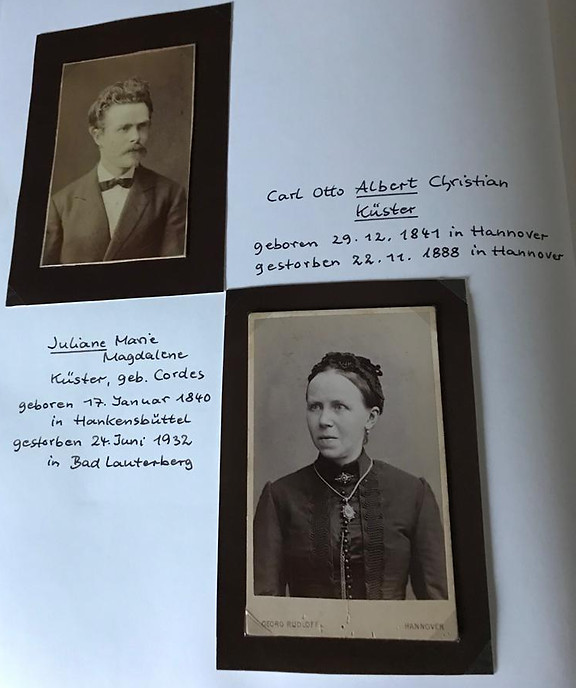 Carl Otto Albert Christian
Küster
geboren 29.12.1841 in Hannover
gestorben 22.11.1888 in Hannover
Juliane Marie
Magdalene
Küster, geb. Cordes
geboren 17. Januar 1840
in Hankensbüttel
gestorben 24. Juni 1932
in Bad Lauterberg
GEORG RUDLOFF HANNOVER